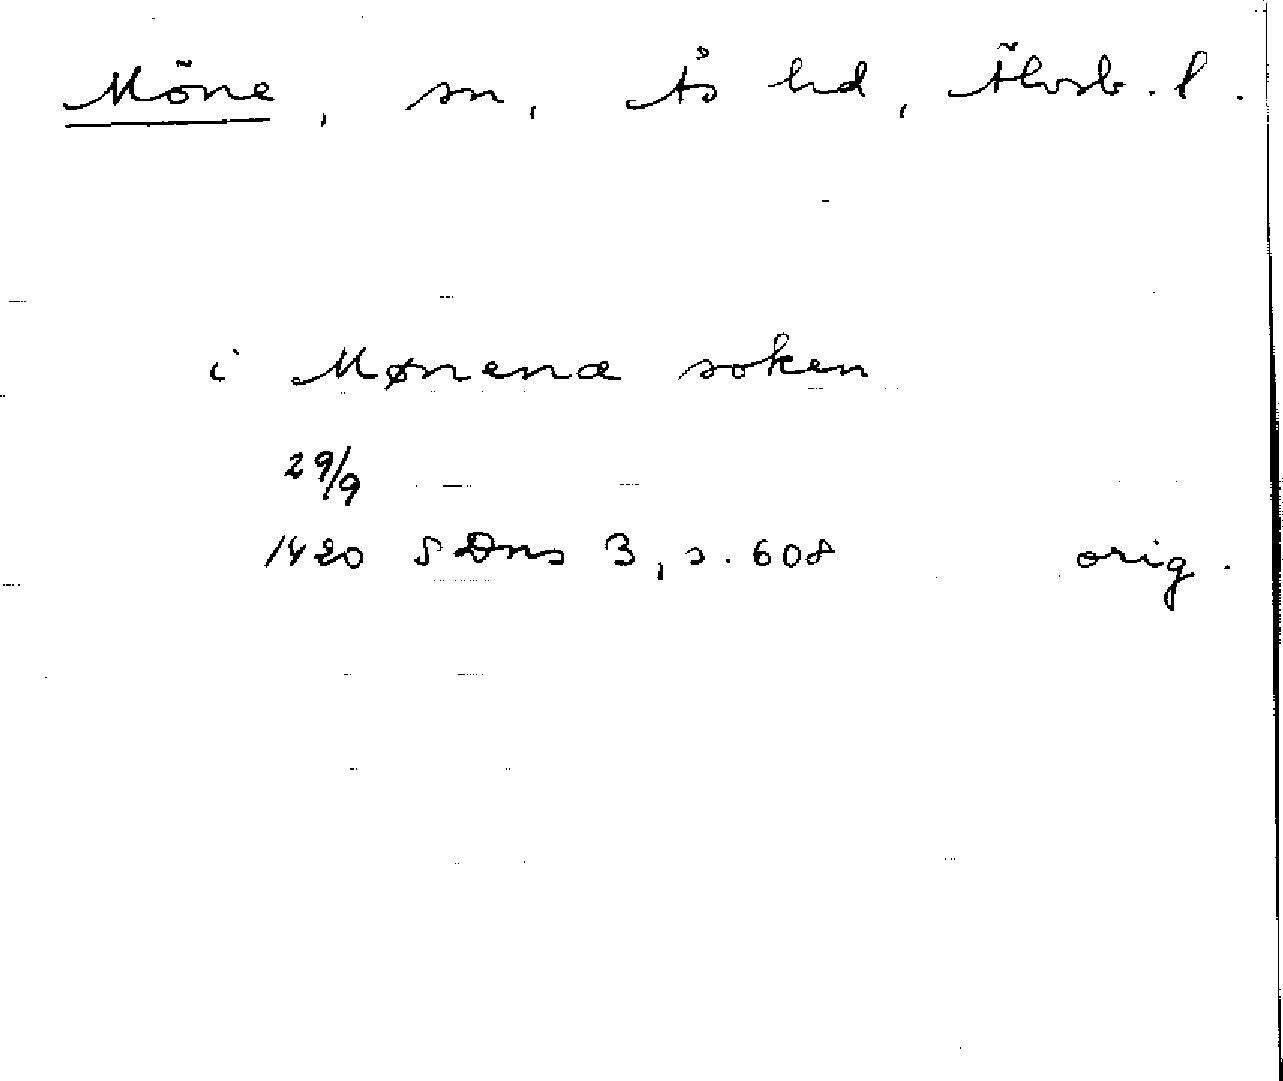 Möne, sn, Ås hd, Älvsb. l.
i Mønenæ soken
29/9
1420 SDns 3, s. 608 orig.